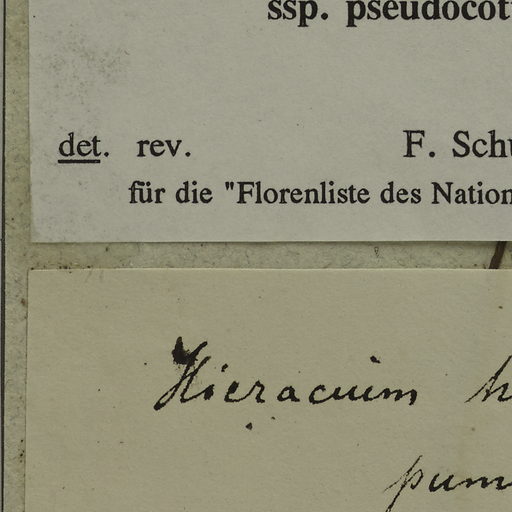 ssp. pseudocot
det. rev. F. Schu
für die "Florenliste des Nation
Hieracium h
pum